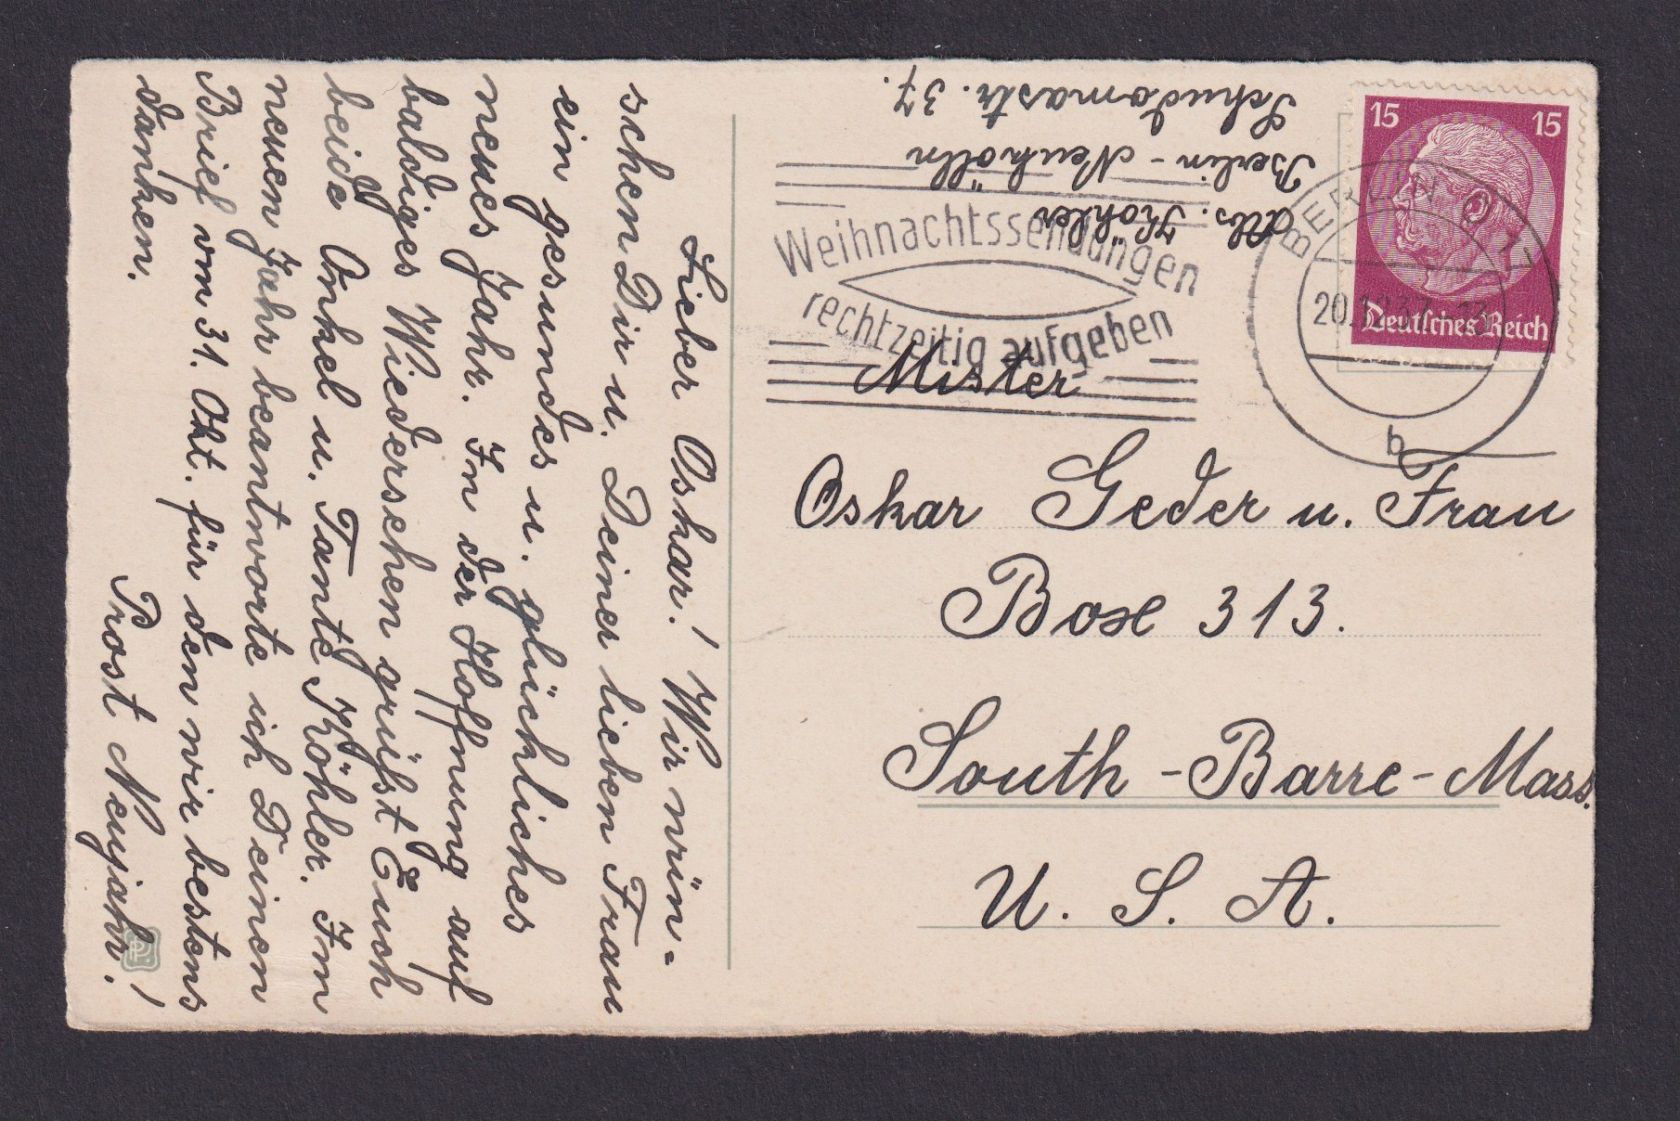 Lieber Oskar! Wir wün-
schen Dir u. Deiner lieben Frau
ein gesundes u. glückliches
neues Jahr. In der Hoffnung auf
baldiges Wiedersehen grüßst Euch
beide Onkel u. Tante Köhler. Im
neuen Jahr beantworte ich Deinen
Brief vom 31. Okt. für den wir bestens
danken.
Prost Neujahr!
Abs. Köhler
Berlin - Neukölln
Schudomastr. 37.
15 15
Deutsches Reich
BERLIN
20.12.37
b
Weihnachtssendungen
rechtzeitig aufgeben
Mister
Oskar Geder u. Frau
Box 313.
South - Barre - Mass.
U. S. A.